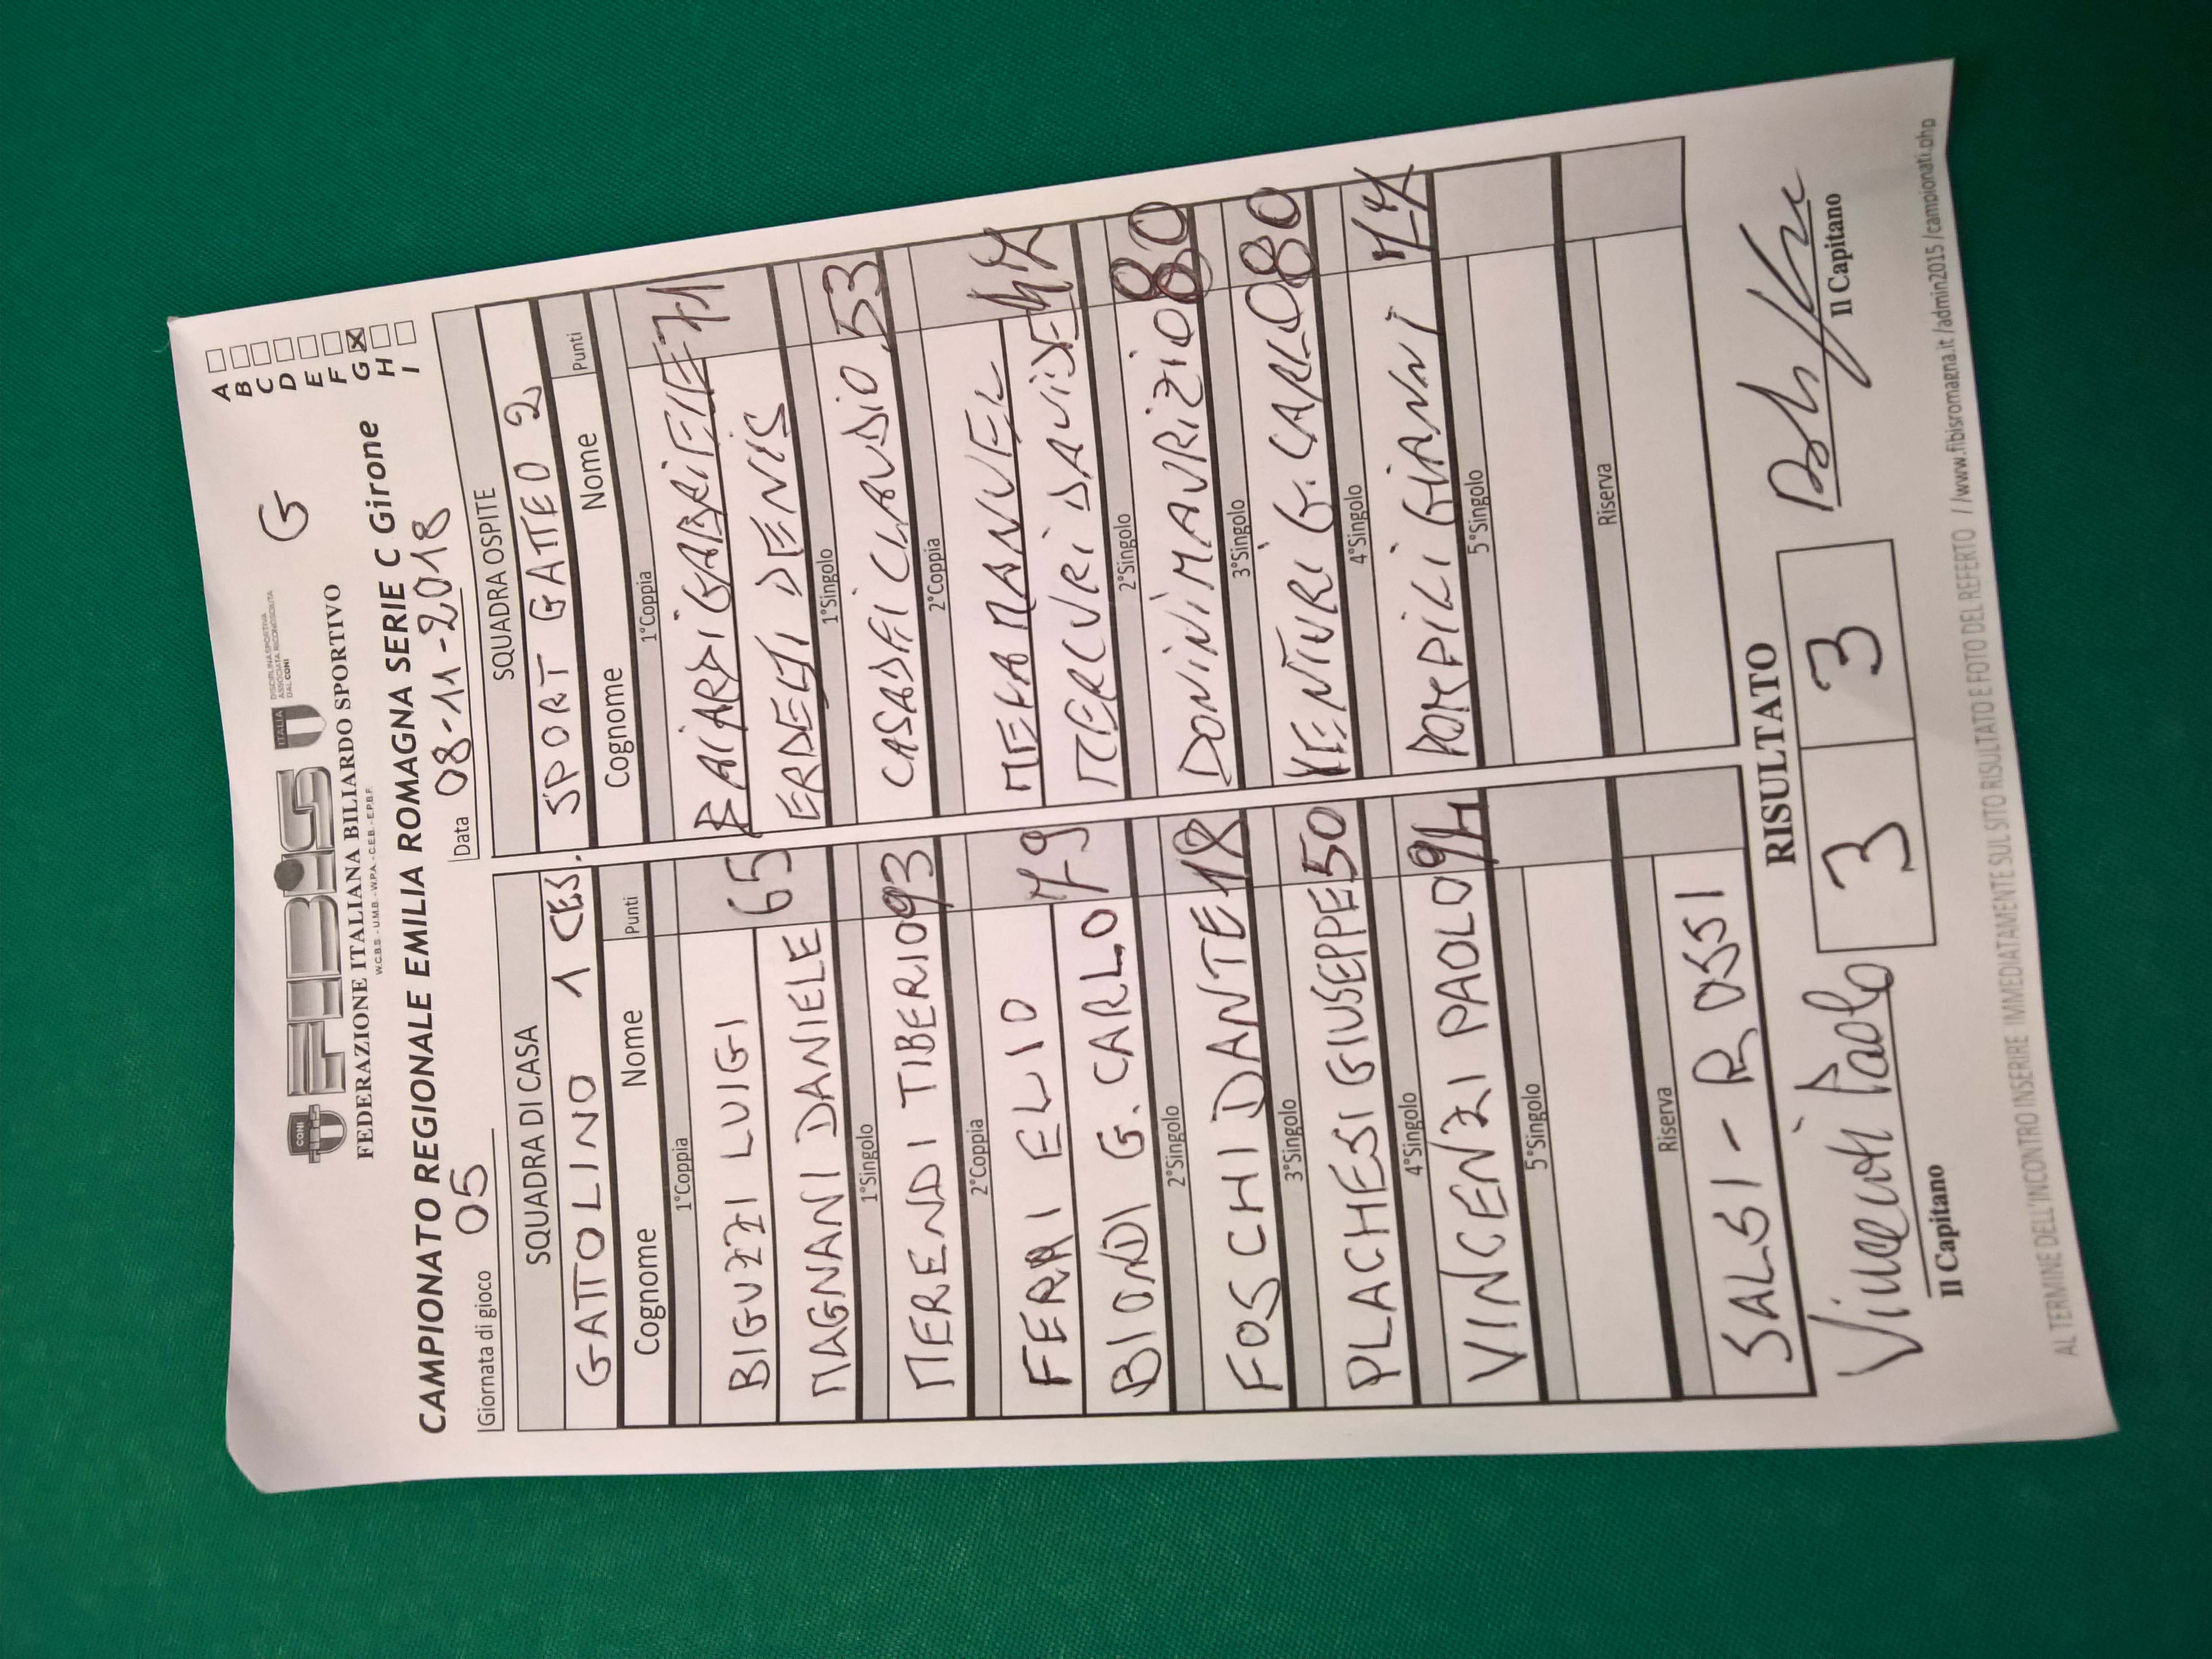 CONI
FIBiS
ITALIA
DISCIPLINA SPORTIVA
ASSOCIATA RICONOSCIUTA
DAL CONI
G
FEDERAZIONE ITALIANA BILIARDO SPORTIVO
W.C.B.S. - U.M.B. - W.P.A. - C.E.B. - E.P.B.F.
CAMPIONATO REGIONALE EMILIA ROMAGNA SERIE C Girone
A
B
C
D
E
F
G X
H
I
Giornata di gioco 05
Data 08-11-2018
SQUADRA DI CASA
GATTOLINO 1 CES.
Cognome Nome Punti
1°Coppia
BIGUZZI LUIGI
MAGNANI DANIELE 65
1°Singolo
MERENDI TIBERIO 93
2°Coppia
FERRI ELIO
BIONDI G. CARLO 79
2°Singolo
FOSCHI DANTE
3°Singolo
PLACHESI GIUSEPPE 50
4°Singolo
VINCENZI PAOLO 94
5°Singolo
Riserva
SALSI - ROSSI
SQUADRA OSPITE
SPORT GATTEO 2
Cognome Nome Punti
1°Coppia
GABRIELE 71
ERDELJI DENIS
1°Singolo
CASADEI CLAUDIO 53
2°Coppia
MANUEL
MERCURI DAVIDE
2°Singolo
DONINI MAURIZIO 80
3°Singolo
VENTURI G. CARLO 80
4°Singolo
POMPILI GIANNI
5°Singolo
Riserva
RISULTATO
3 3
Vincenzi Paolo
Il Capitano
Il Capitano
AL TERMINE DELL'INCONTRO INSERIRE IMMEDIATAMENTE SUL SITO RISULTATO E FOTO DEL REFERTO //www.fibisromagna.it/admin2015/campionati.php